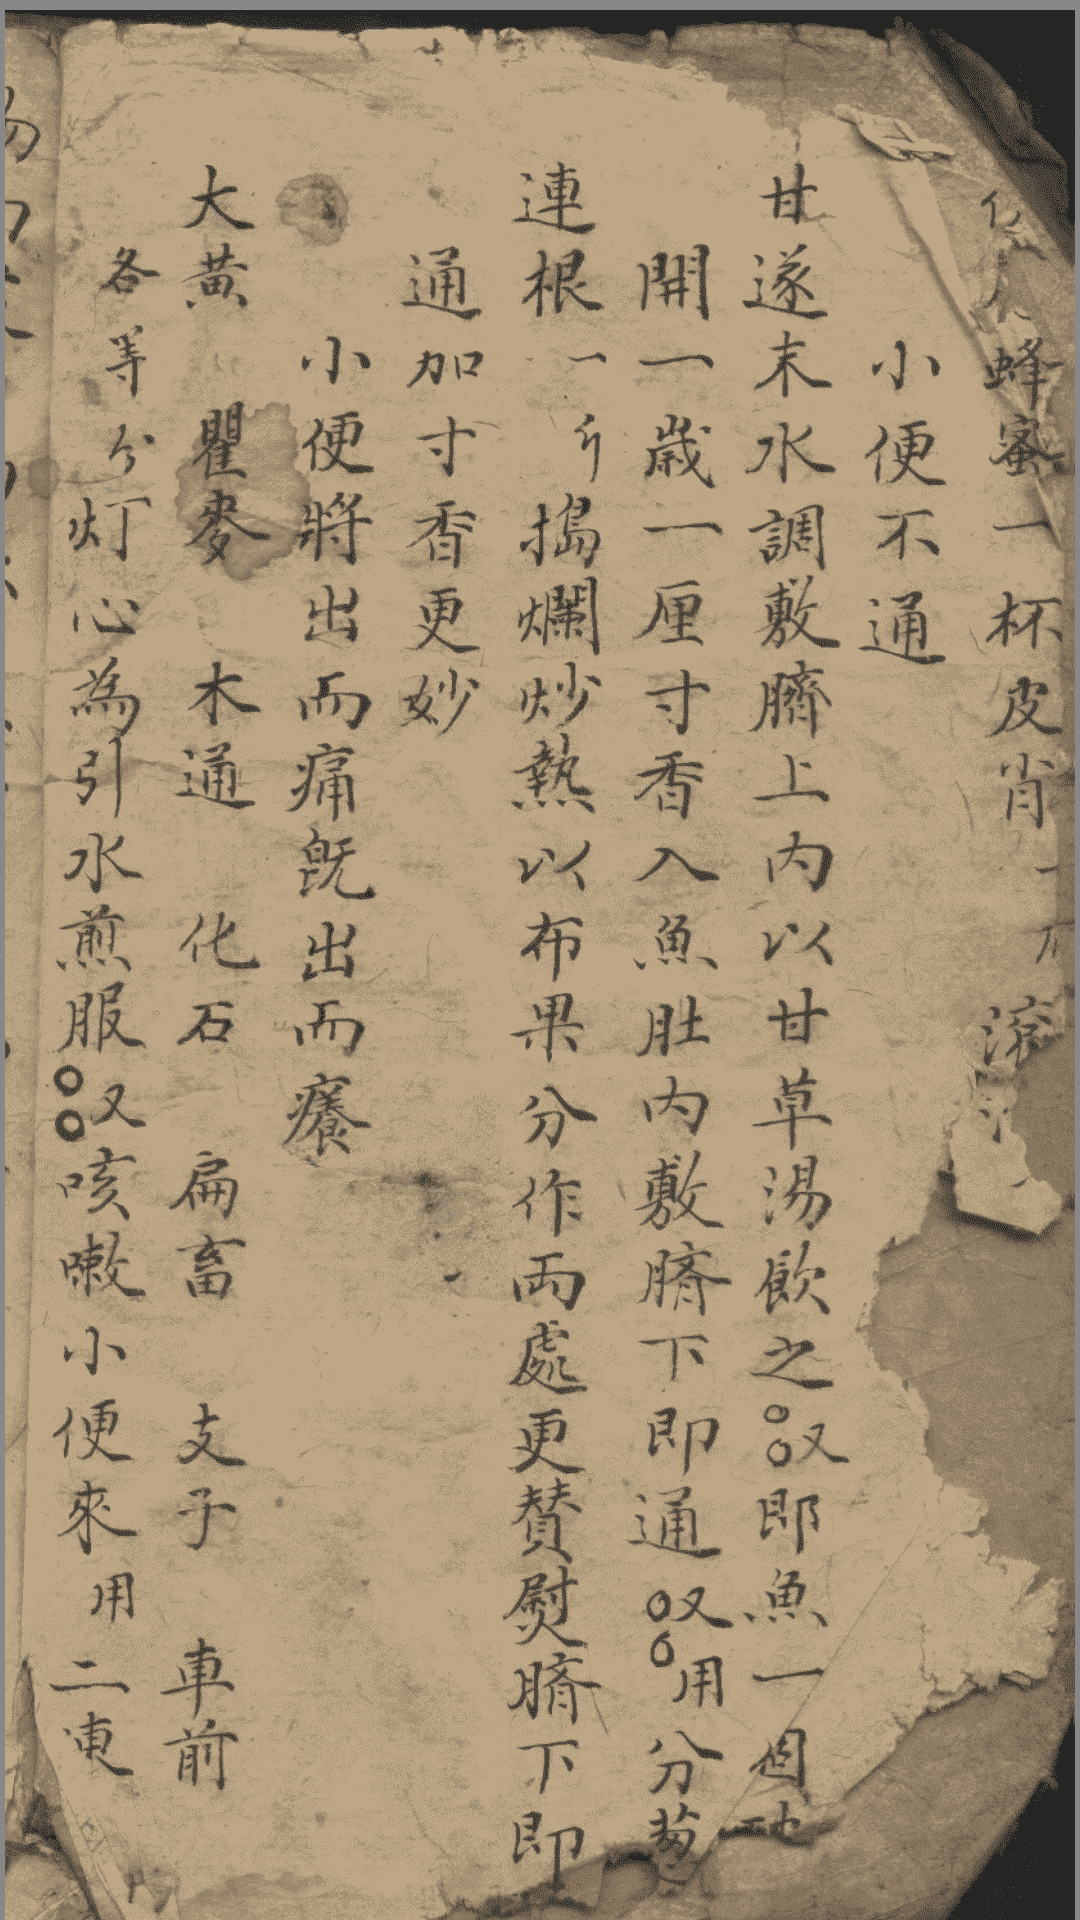 蜂蜜一杯皮肖一
小便不通
甘遂末水調敷臍上内以甘草湯飲之○○又即魚一個
開一歲一厘寸香入魚肚内敷臍下即通○○又用分葱
連根一斤搗爛炒熱以布果分作両處更賛熨臍下即
通加寸香更妙
小便將出而痛旣出而癢
大黄 瞿麥 木通 化石 扁畜 支子 車前
各等分灯心為引水煎服○○又咳嗽小便來用二東